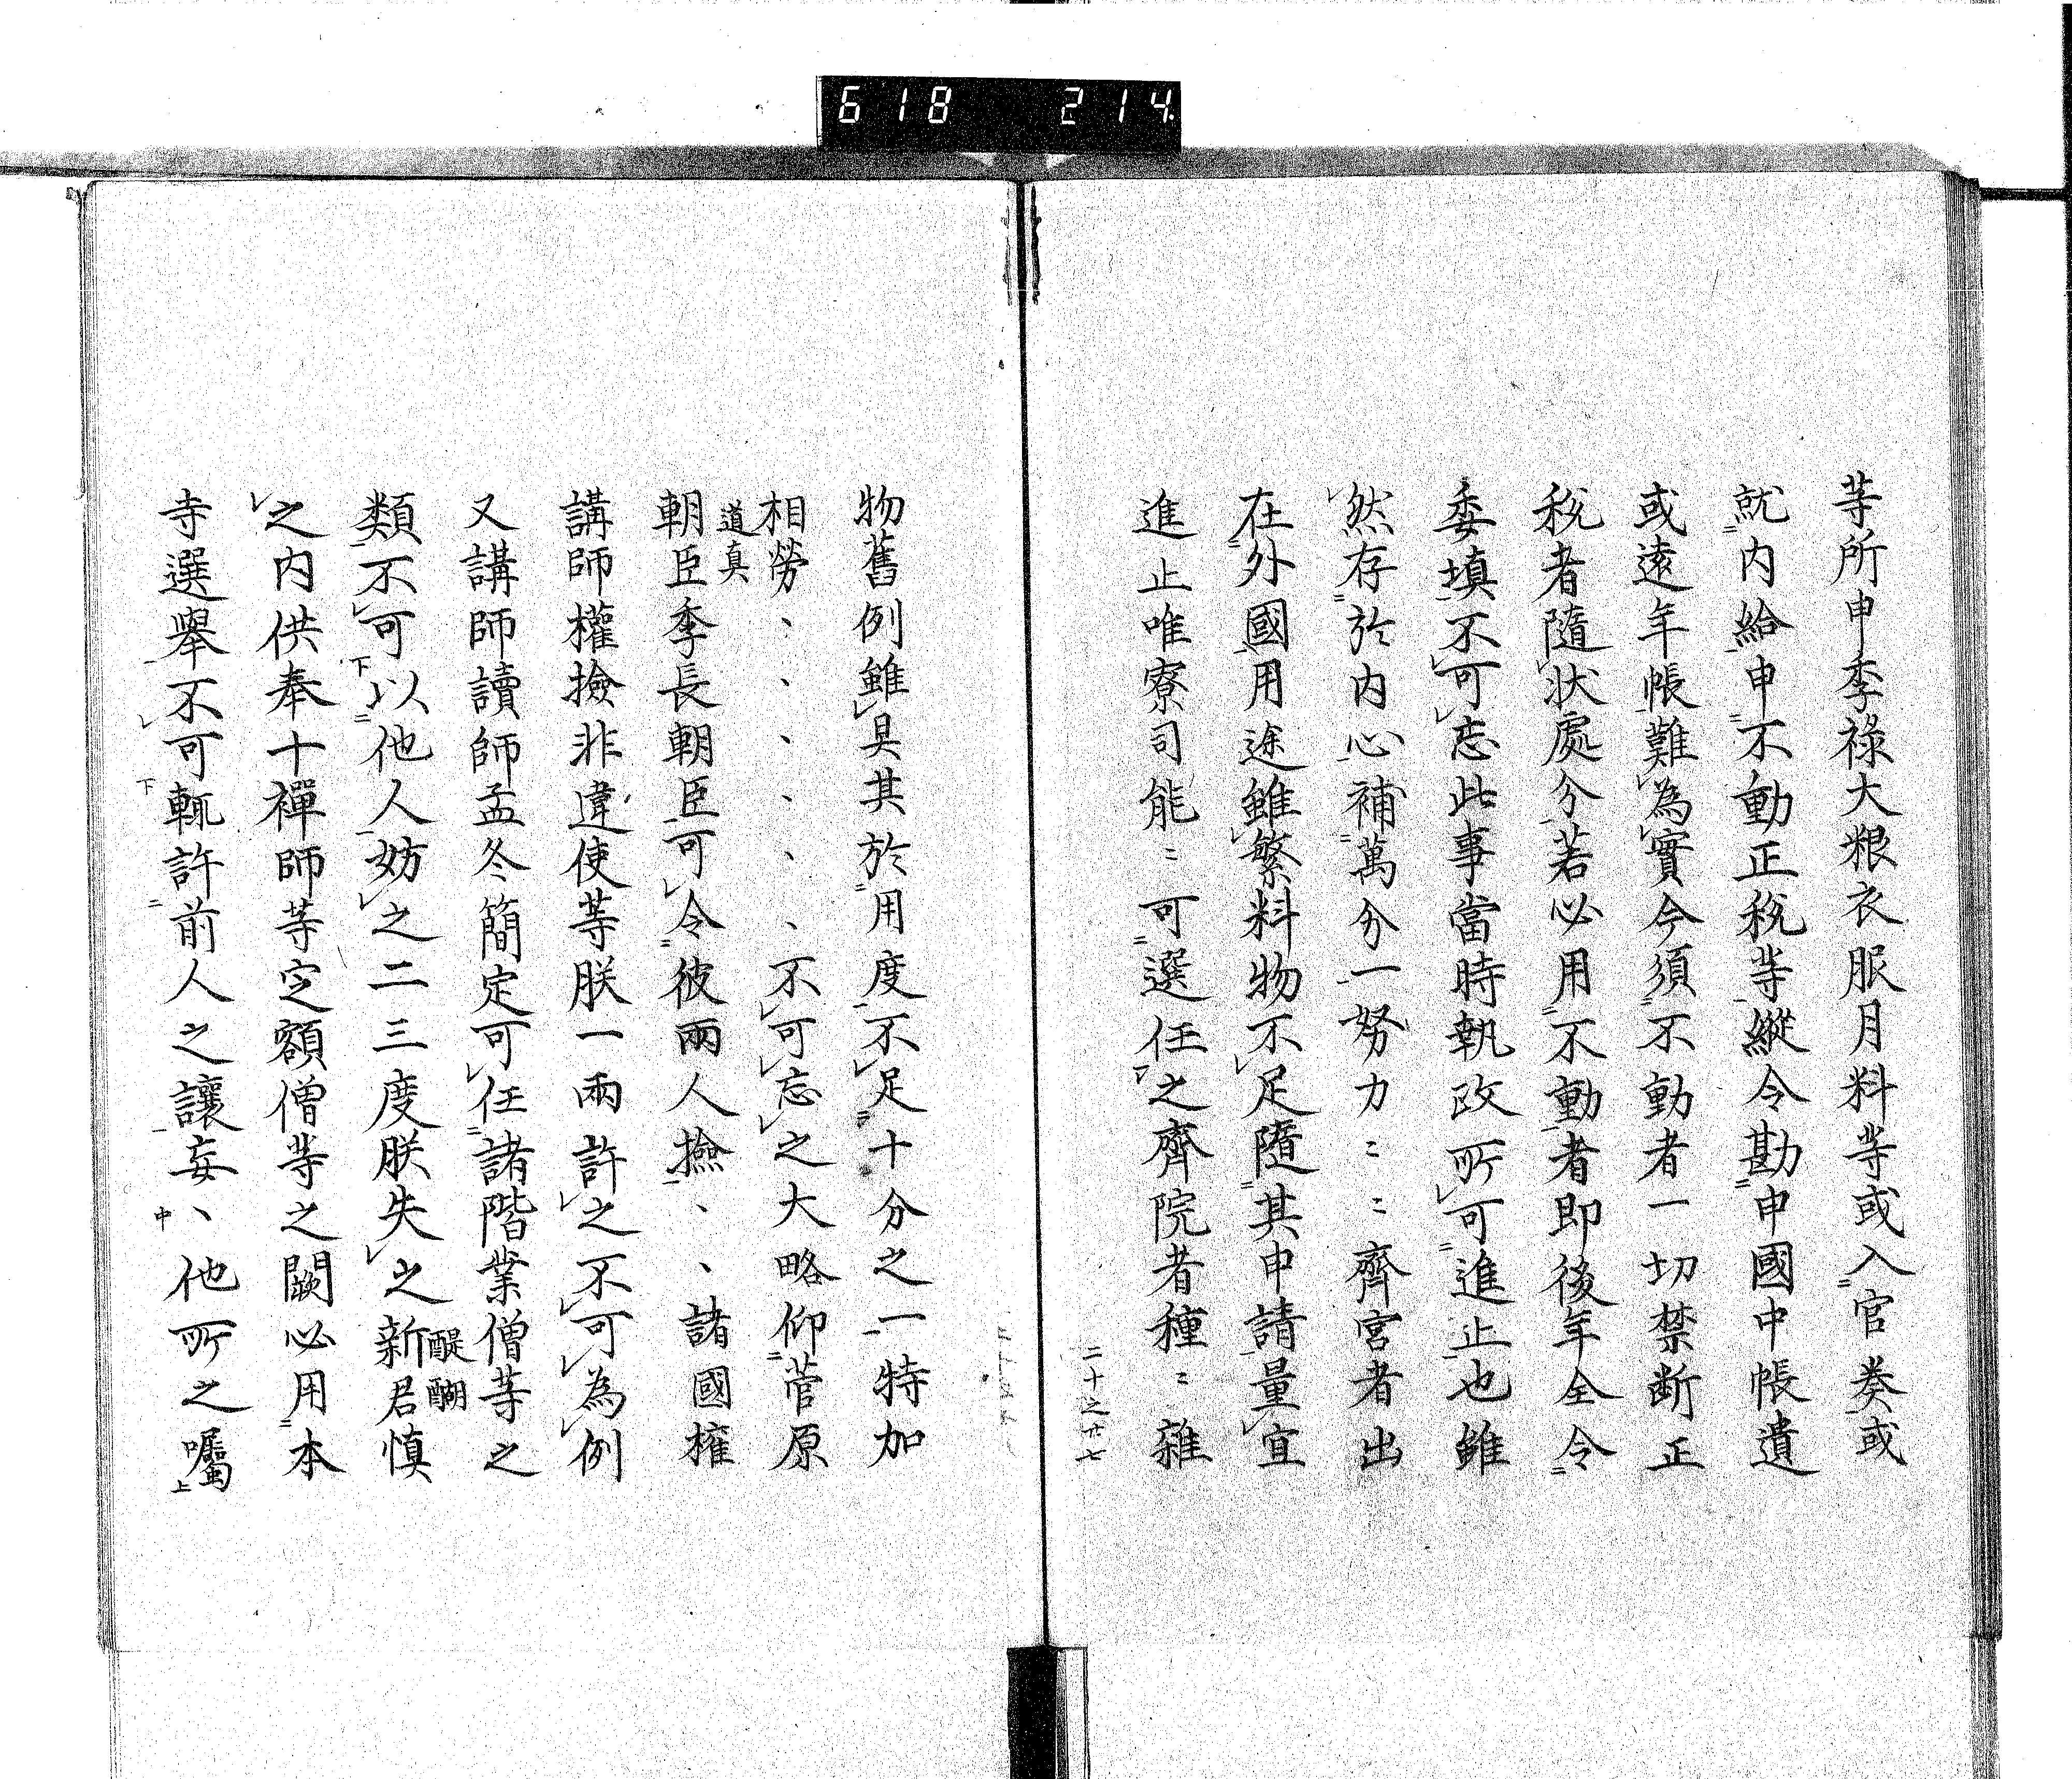 618 214.
等所申季祿大粮衣服月料等或入官奏或
就内給申不動正稅等縱令勘申國中帳遺
或遠年帳難為實今須不動者一切禁断正
税者隨状處分若必用不動者即後年全令
委填不可忘此事當時執政所可進止也雖
然存於内心補萬分一努力〻〻齊宮者出
在外國用途雖繁料物不足隨其申請量宜
進止唯寮司能〻可選任之齊院者種〻雜
二十之廿七
物舊例雖具其於用度不足十分之一特加
相勞、、、、、、不可忘之大略仰菅原
道真
朝臣季長朝臣可令彼兩人撿、、諸國権
講師權撿非違使等朕一兩許之不可為例
又講師讀師孟冬簡定可任諸階業僧等之
類不可以他人妨之二三度朕失之新君慎
醍醐
之内供奉十禪師等定額僧等之闕必用本
寺選舉不可輒許前人之讓妄、他所之囑